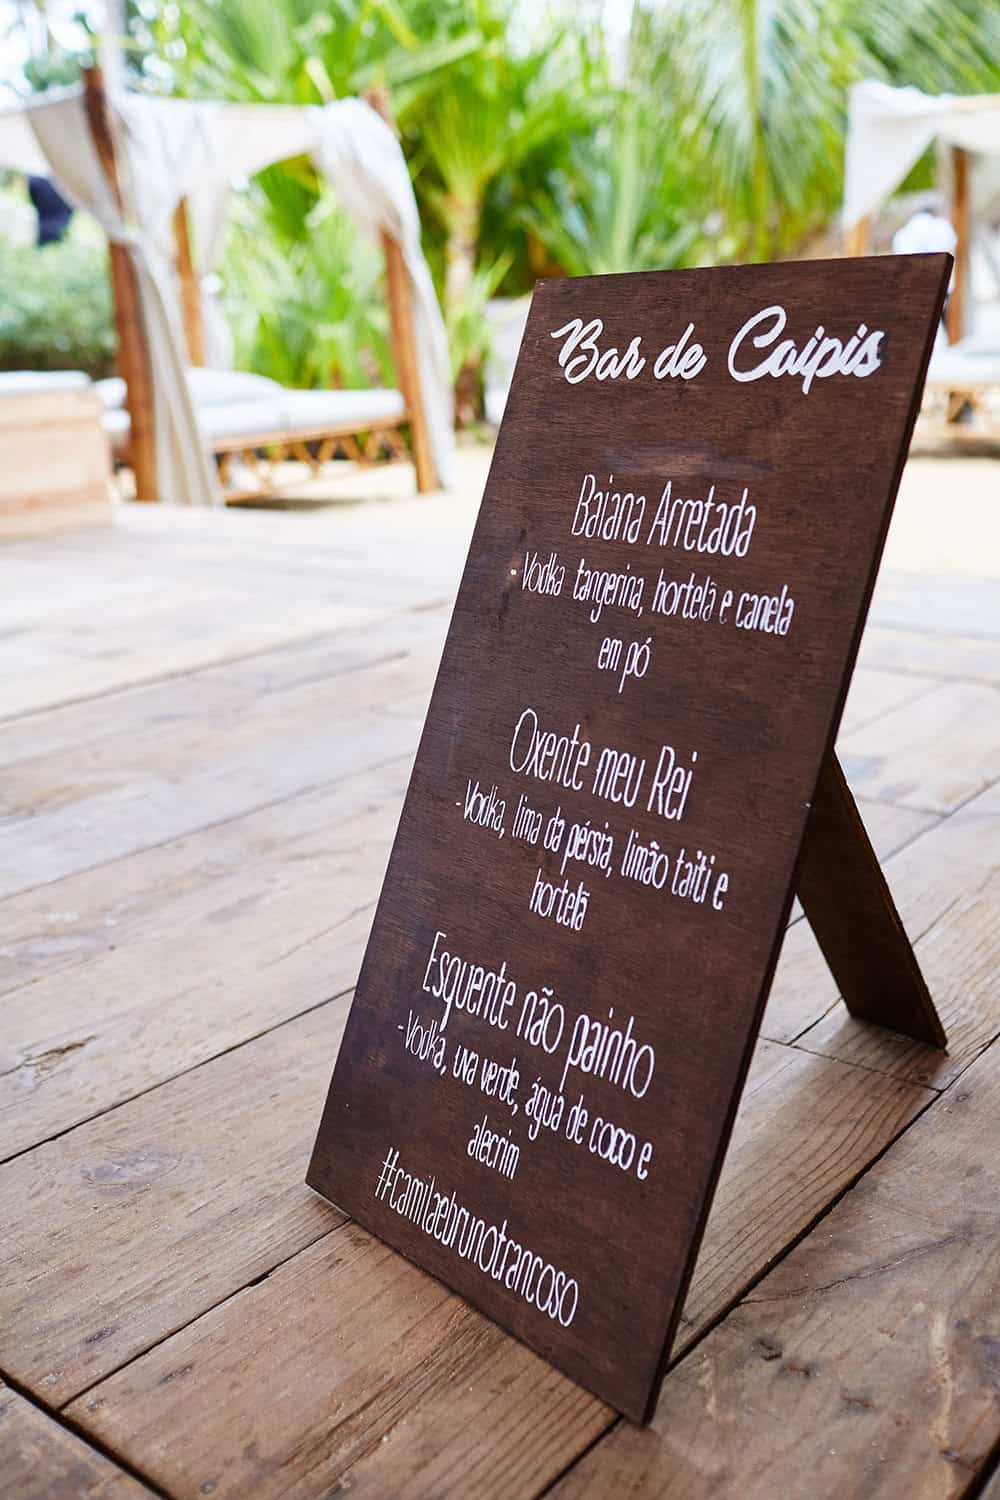 Bar de Caipis
Baiana Arretada
- Vodka tangerina, hortelã e canela
em pó
Oxente meu Rei
- Vodka, lima da pérsia, limão taiti e
hortelã
Esquente não painho
- Vodka, uva verde, água de coco e
alecrim
#camilaebrunotrancoso